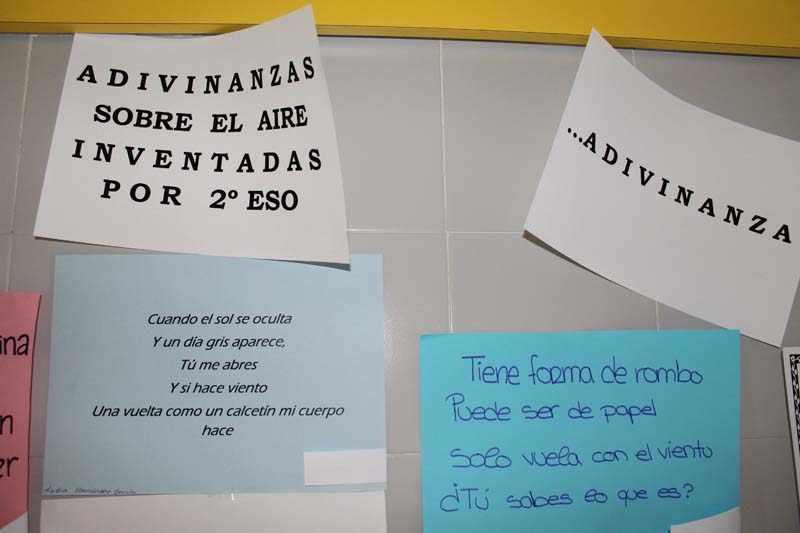 ADIVINANZAS
SOBRE EL AIRE
INVENTADAS
POR 2º ESO
...ADIVINANZA
Cuando el sol se oculta
Y un día gris aparece,
Tú me abres
Y si hace viento
Una vuelta como un calcetín mi cuerpo
hace
Lydia Hernández García
Tiene forma de rombo
Puede ser de papel
Solo vuela con el viento
¿Tú sabes lo que es?
ina
n
er